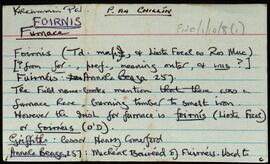 P. an Chillín
FOIRNIS
Furnace
Foirnis (Td: & Liosta Focal as Ros Muc)
[? from for-, pref., meaning outer, & inis ?]
Fuirnéis - Annála Beaga 257.
The Field name-books mention that there was a
furnace here burning timber to smelt iron
However the Irish for furnace is foirnís (Liosta Focal)
or foirnéis (O'D)
Griffith: Lessor Henry Crawford
Annála Beaga 257: Micheál Bairéad of Fuirnéis. Used to